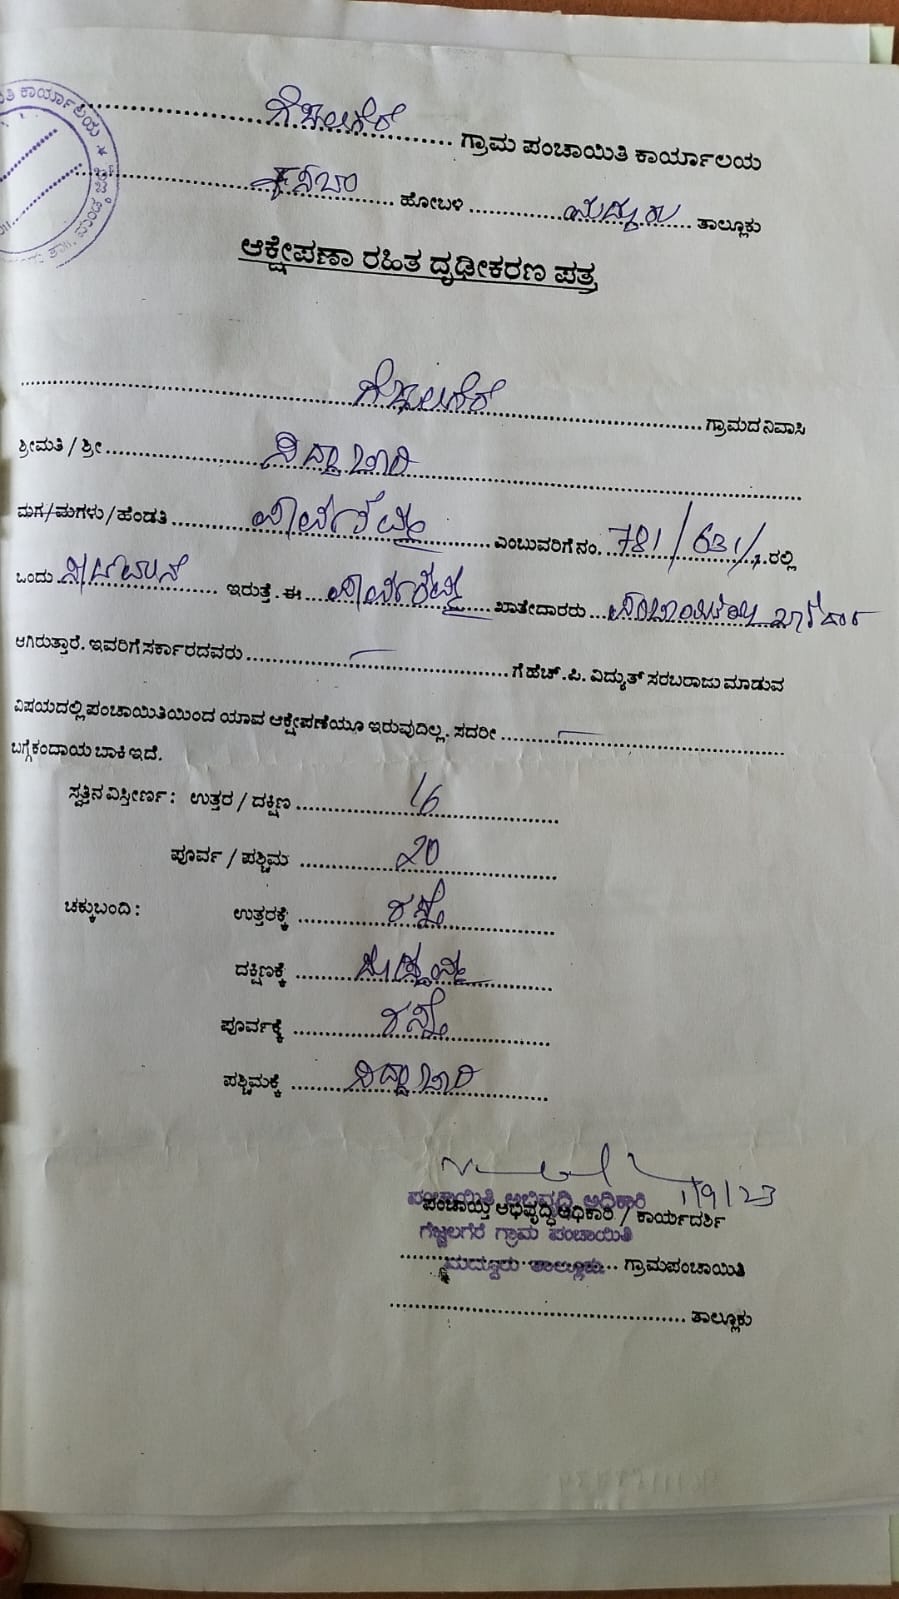 ತಿ ಕಾರ್ಯಾಲಯ *
ಗೆಜ್ಜಲಗೆರೆ ಗ್ರಾಮ ಪಂಚಾಯಿತಿ ಕಾರ್ಯಾಲಯ
ಕಸಬಾ ಹೋಬಳಿ ಮದ್ದೂರು ತಾಲ್ಲೂಕು
ಆಕ್ಷೇಪಣಾ ರಹಿತ ದೃಢೀಕರಣ ಪತ್ರ
ಗೆಜ್ಜಲಗೆರೆ ಗ್ರಾಮದ ನಿವಾಸಿ
ಶ್ರೀಮತಿ / ಶ್ರೀ
ಮಗ/ಮಗಳು/ಹೆಂಡತಿ ಎಂಬುವರಿಗೆ ನಂ. 781/631/1 ರಲ್ಲಿ
ಒಂದು ಇರುತ್ತೆ. ಈ ಖಾತೇದಾರರು
ಆಗಿರುತ್ತಾರೆ. ಇವರಿಗೆ ಸರ್ಕಾರದವರು ಗೆ ಹೆಚ್.ಪಿ. ವಿದ್ಯುತ್ ಸರಬರಾಜು ಮಾಡುವ
ವಿಷಯದಲ್ಲಿ ಪಂಚಾಯಿತಿಯಿಂದ ಯಾವ ಆಕ್ಷೇಪಣೆಯೂ ಇರುವುದಿಲ್ಲ. ಸದರೀ
ಬಗ್ಗೆ ಕಂದಾಯ ಬಾಕಿ ಇದೆ.
ಸ್ವತ್ತಿನ ವಿಸ್ತೀರ್ಣ : ಉತ್ತರ / ದಕ್ಷಿಣ 16
ಪೂರ್ವ / ಪಶ್ಚಿಮ 20
ಚಕ್ಕುಬಂದಿ : ಉತ್ತರಕ್ಕೆ ರಸ್ತೆ
ದಕ್ಷಿಣಕ್ಕೆ
ಪೂರ್ವಕ್ಕೆ ರಸ್ತೆ
ಪಶ್ಚಿಮಕ್ಕೆ
1/9/23
ಪಂಚಾಯಿತಿ ಅಭಿವೃದ್ಧಿ ಅಧಿಕಾರಿ
ಪಂಚಾಯ್ತಿ ಅಭಿವೃದ್ಧಿ ಅಧಿಕಾರಿ / ಕಾರ್ಯದರ್ಶಿ
ಗೆಜ್ಜಲಗೆರೆ ಗ್ರಾಮ ಪಂಚಾಯಿತಿ
ಮದ್ದೂರು ತಾಲ್ಲೂಕು ಗ್ರಾಮಪಂಚಾಯಿತಿ
ತಾಲ್ಲೂಕು